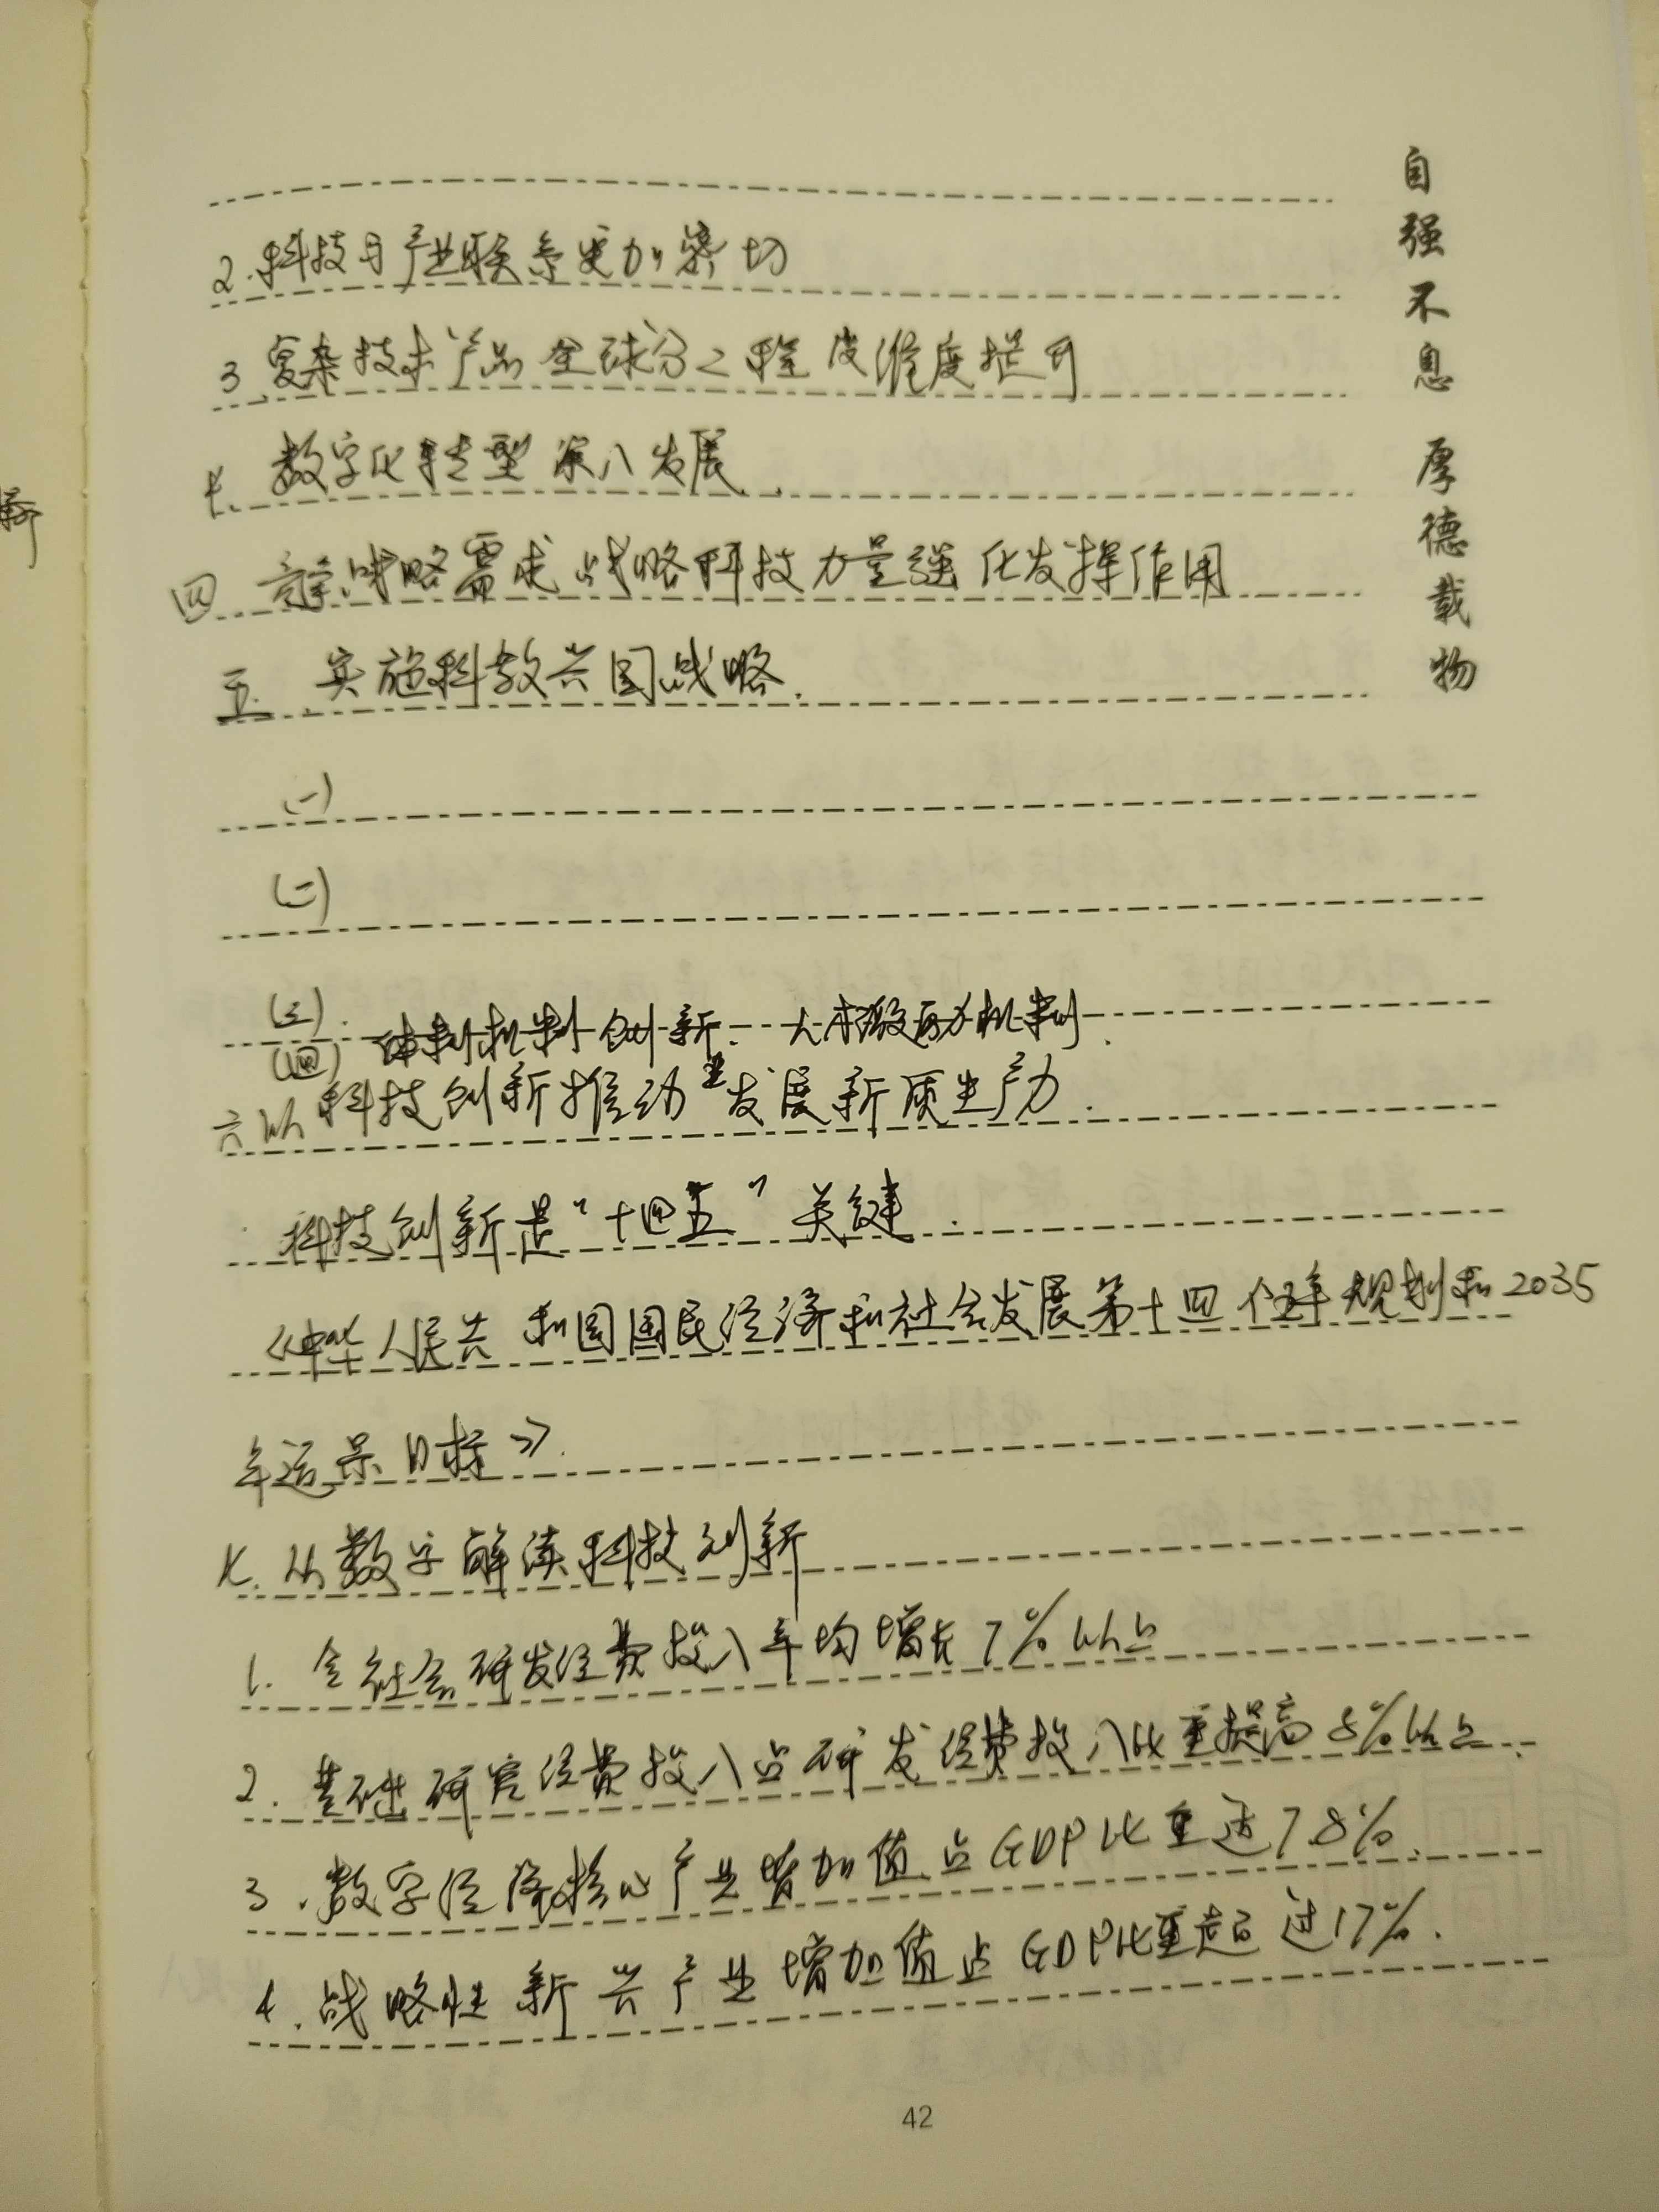 自强不息 厚德载物
2.科技与产业联系更加紧切
3 复杂技术产品全球分工程度难度提升
4. 数字化转型深入发展.
四 战略需求 战略科技力量强化发挥作用
五. 实施科教兴国战略.
(一)
(二)
(三).
(四) 体制机制创新. 人才激励机制.
六 以科技创新推动 发展新质生产力.
科技创新是“十四五”关键.
《中华人民共和国国民经济和社会发展第十四个五年规划和2035
年远景目标》.
七. 从数字解读科技创新
1. 全社会研发经费投入年均增长7%以上
2. 基础研究经费投入占研发经费投入比重提高8%以上.
3. 数字经济核心产业增加值占GDP比重达7.8%.
4. 战略性新兴产业增加值占GDP比重超过17%.
42